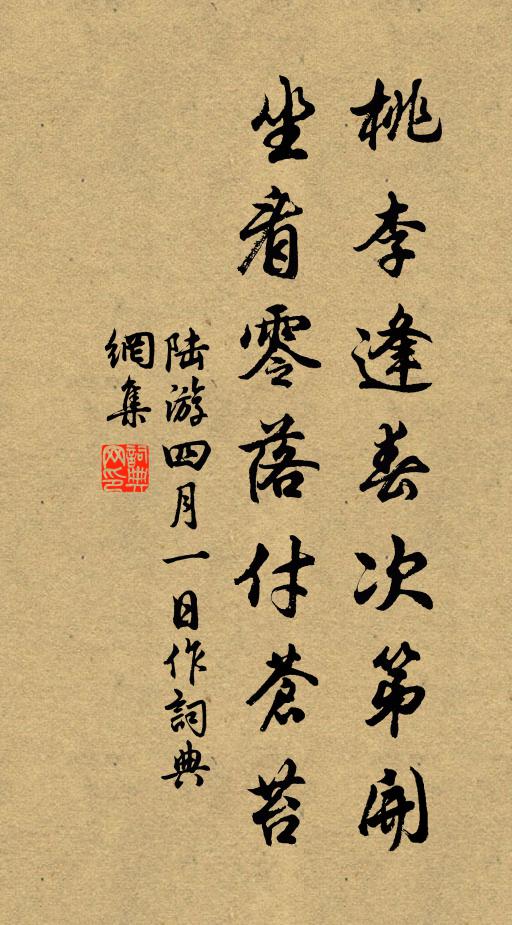 桃李逢春次第開
坐看零落付蒼苔
陆游四月一日作詞典
網集
詞典
网印